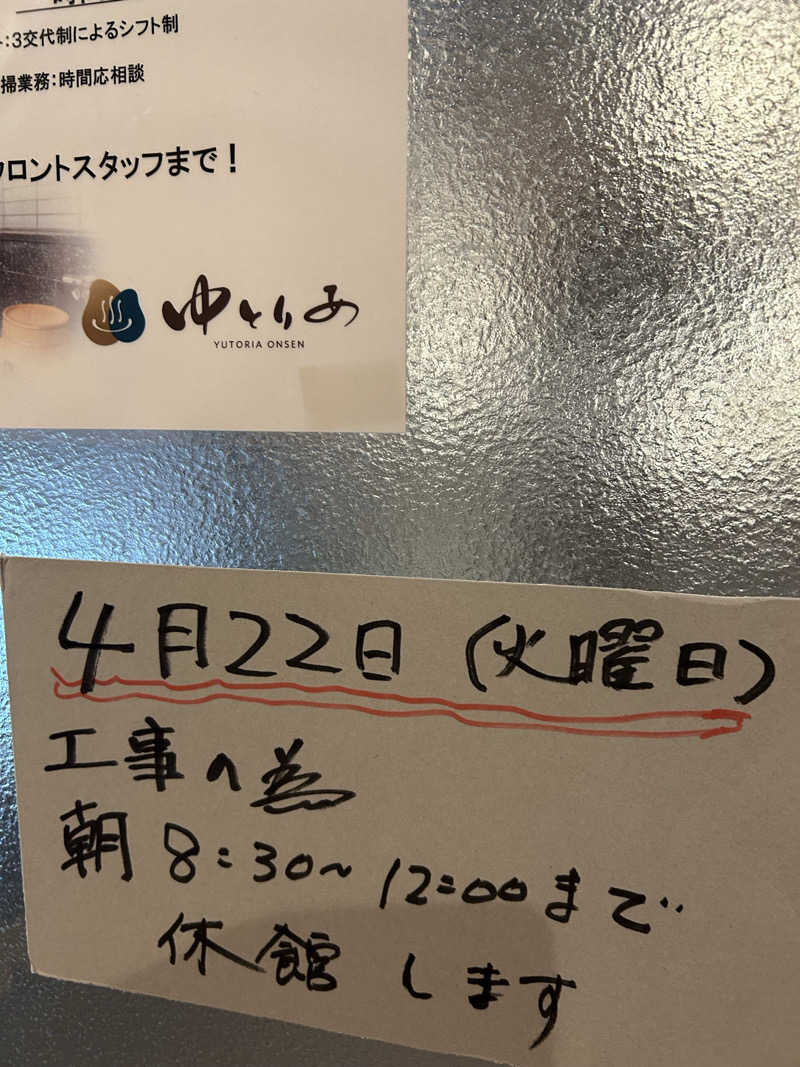 :3交代制によるシフト制
掃業務:時間応相談
フロントスタッフまで!
ゆとりあ
YUTORIA ONSEN
4月22日(火曜日)
工事の為
朝8:30~12:00まで
休館します